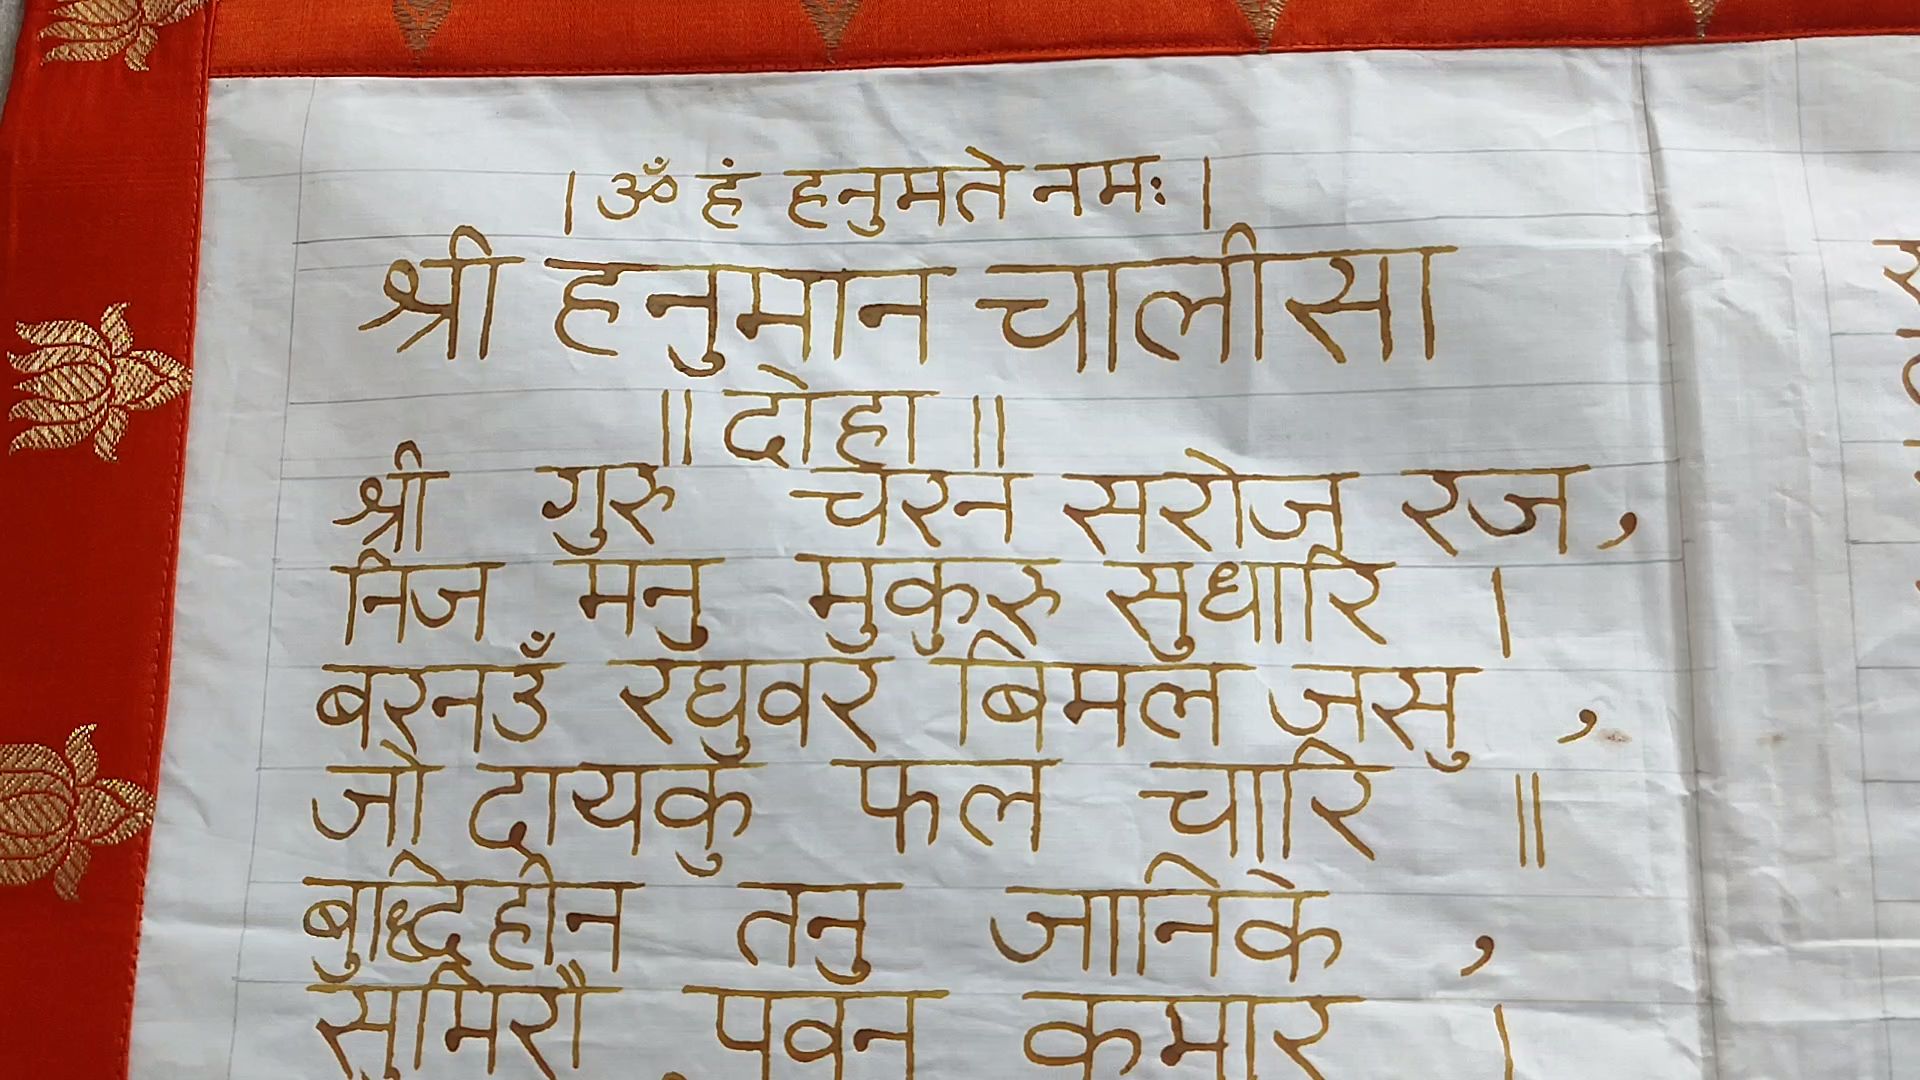 । ॐ हं हनुमते नमः ।
श्री हनुमान चालीसा
॥ दोहा ॥
श्री गुरु चरन सरोज रज ,
निज मनु मुकुरु सुधारि ।
बरनउँ रघुवर बिमल जसु ,
जो दायकु फल चारि ॥
बुद्धिहीन तनु जानिके ,
सुमिरौ पवन कुमार ।